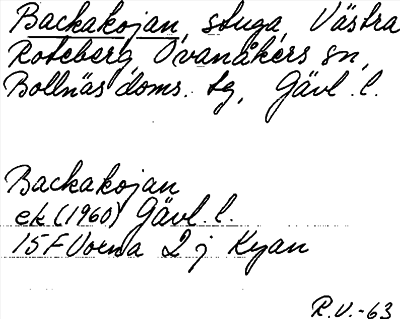 Backakojan, stuga, Västra
Roteberg, Ovanåkers sn,
Bollnäs doms. tg, Gävl. l.
Backakojan
ek (1960) Gävl. l.
15F Voxna 2 j Kyan
R.V.-63